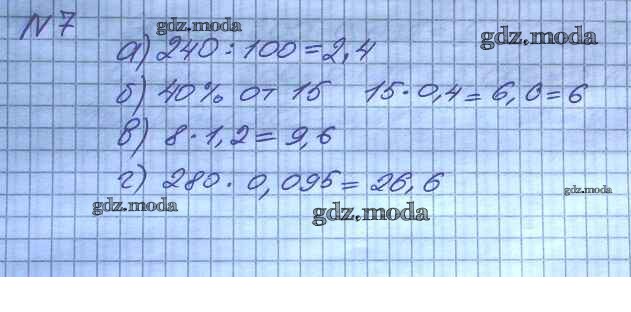 N 7
gdz.moda
gdz.moda
а) 240 : 100 = 2,4
б) 40% от 15 15 · 0,4 = 6,0 = 6
в) 8 · 1,2 = 9,6
г) 280 · 0,095 = 26,6
gdz.moda
gdz.moda
gdz.moda